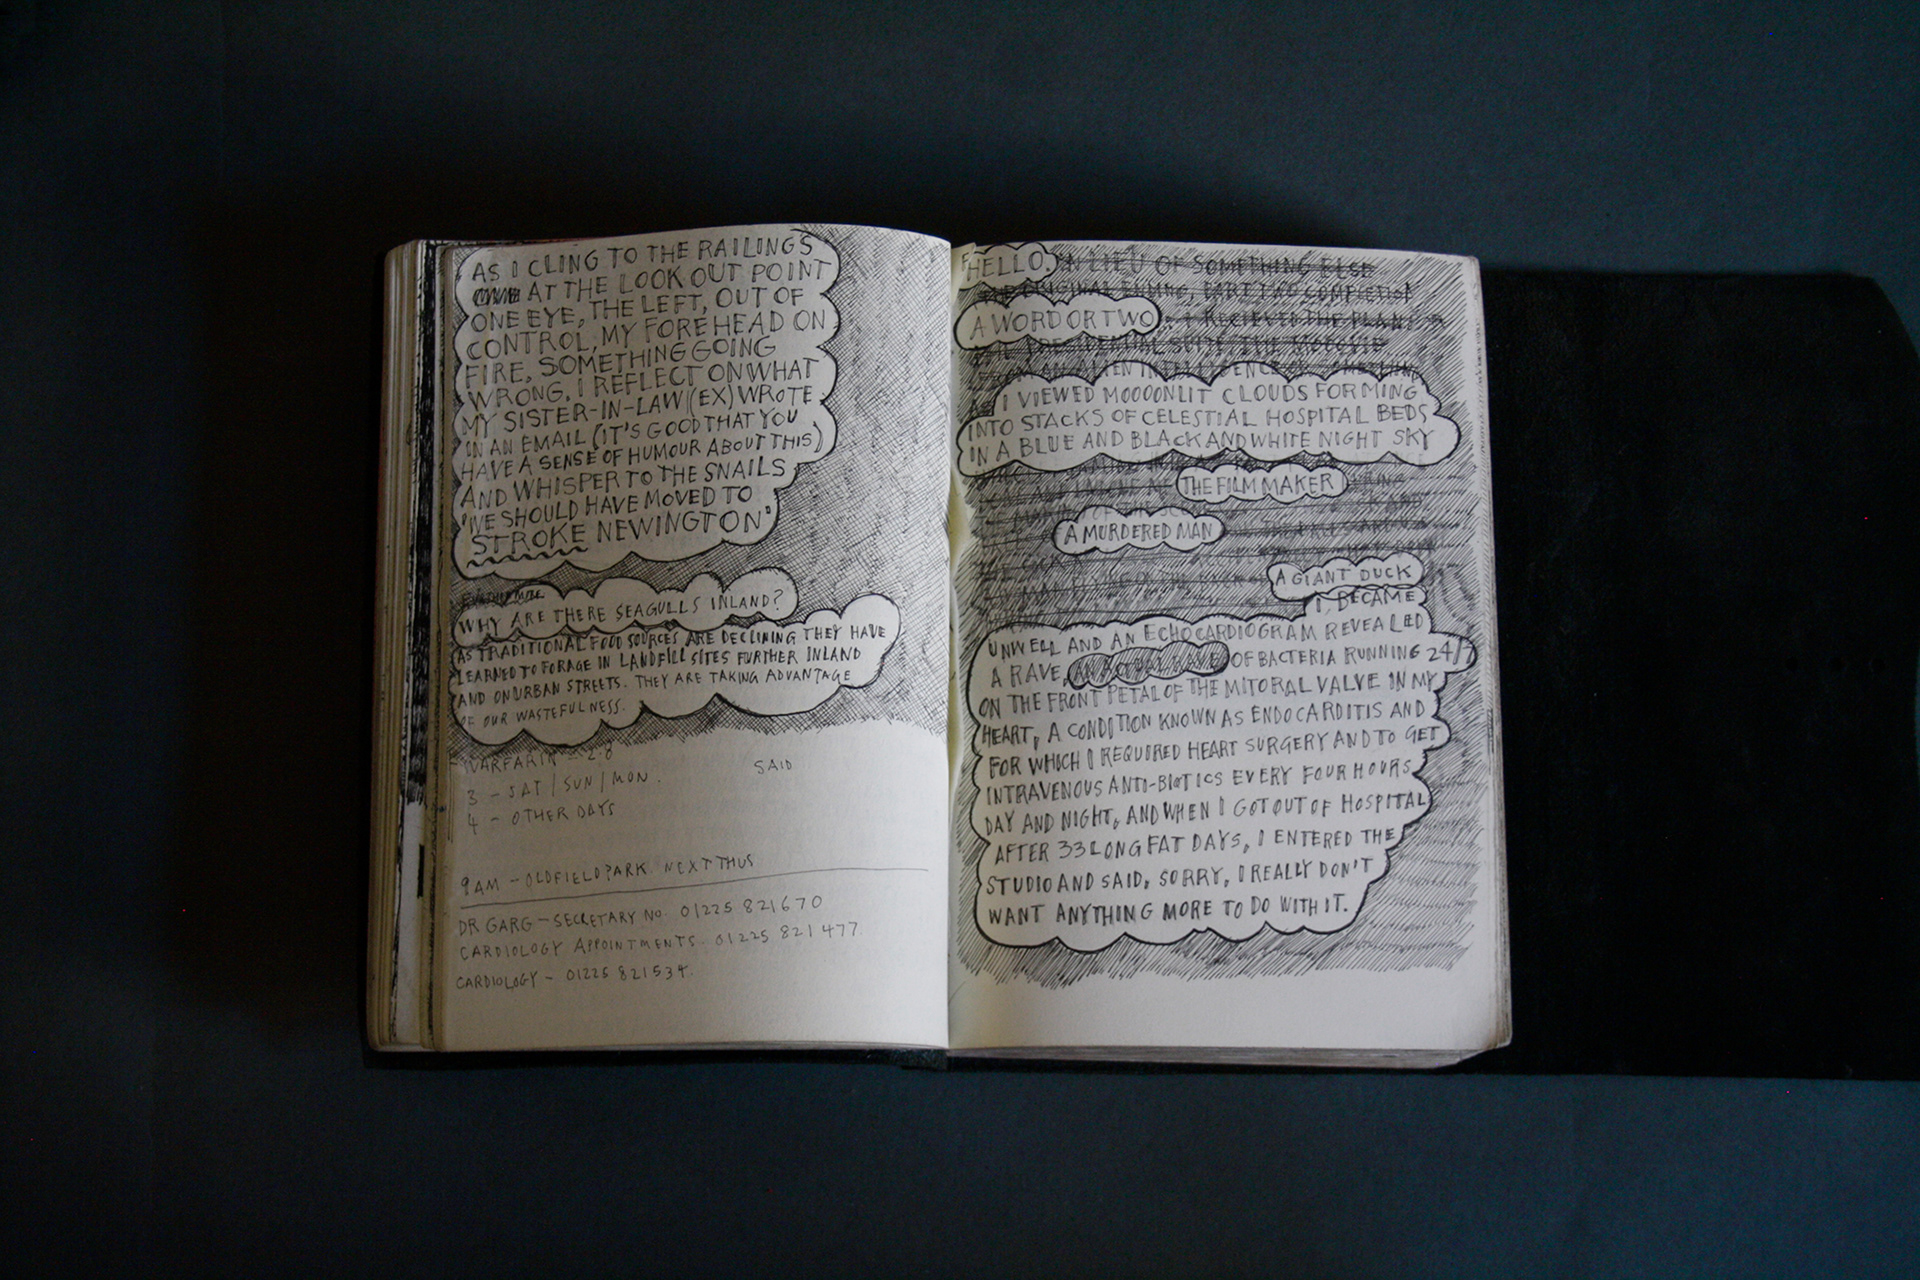 AS I CLING TO THE RAILINGS
AT THE LOOK OUT POINT
ONE EYE, THE LEFT, OUT OF
CONTROL, MY FOREHEAD ON
FIRE, SOMETHING GOING
WRONG. I REFLECT ON WHAT
MY SISTER-IN-LAW (EX) WROTE
IN AN EMAIL (IT'S GOOD THAT YOU
HAVE A SENSE OF HUMOUR ABOUT THIS)
AND WHISPER TO THE SNAILS
'WE SHOULD HAVE MOVED TO
STROKE NEWINGTON'
WHY ARE THERE SEAGULLS INLAND?
AS TRADITIONAL FOOD SOURCES ARE DECLINING THEY HAVE
LEARNED TO FORAGE IN LANDFILL SITES FURTHER INLAND
AND ON URBAN STREETS. THEY ARE TAKING ADVANTAGE
OF OUR WASTEFULNESS.
WARFARIN - 2.8
SAID
3 - SAT / SUN / MON.
4 - OTHER DAYS
9AM - OLDFIELD PARK NEXT THUS
DR GARG - SECRETARY NO. 01225 821670
CARDIOLOGY APPOINTMENTS. 01225 821 477.
CARDIOLOGY - 01225 821534.
HELLO. IN LIEU OF SOMETHING ELSE
ORIGINAL PART TWO COMPLETION
A WORD OR TWO. I RECIEVED THE PLANT
I VIEWED MOOOONLIT CLOUDS FORMING
INTO STACKS OF CELESTIAL HOSPITAL BEDS
IN A BLUE AND BLACK AND WHITE NIGHT SKY
THE FILM MAKER
A MURDERED MAN
A GIANT DUCK
I, BECAME
UNWELL AND AN ECHOCARDIOGRAM REVEALED
A RAVE, OF BACTERIA RUNNING 24/7
ON THE FRONT PETAL OF THE MITORAL VALVE IN MY
HEART, A CONDITION KNOWN AS ENDOCARDITIS AND
FOR WHICH I REQUIRED HEART SURGERY AND TO GET
INTRAVENOUS ANTI-BIOTICS EVERY FOUR HOURS,
DAY AND NIGHT, AND WHEN I GOT OUT OF HOSPITAL
AFTER 33 LONG FAT DAYS, I ENTERED THE
STUDIO AND SAID, SORRY, I REALLY DON'T
WANT ANYTHING MORE TO DO WITH IT.